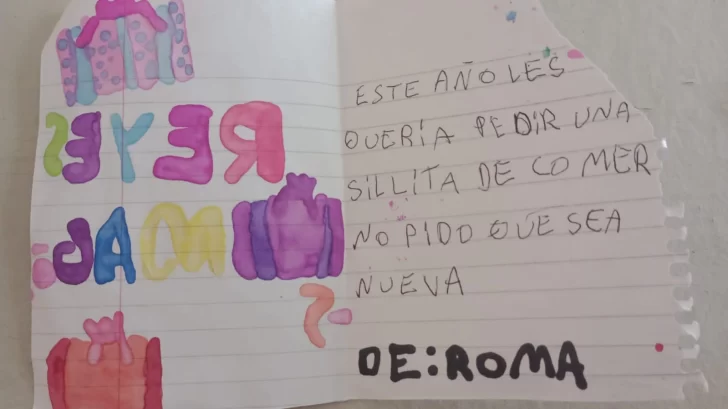 REYES
MAGO
S
ESTE AÑO LES
QUERÍA PEDIR UNA
SILLITA DE COMER
NO PIDO QUE SEA
NUEVA
DE: ROMA